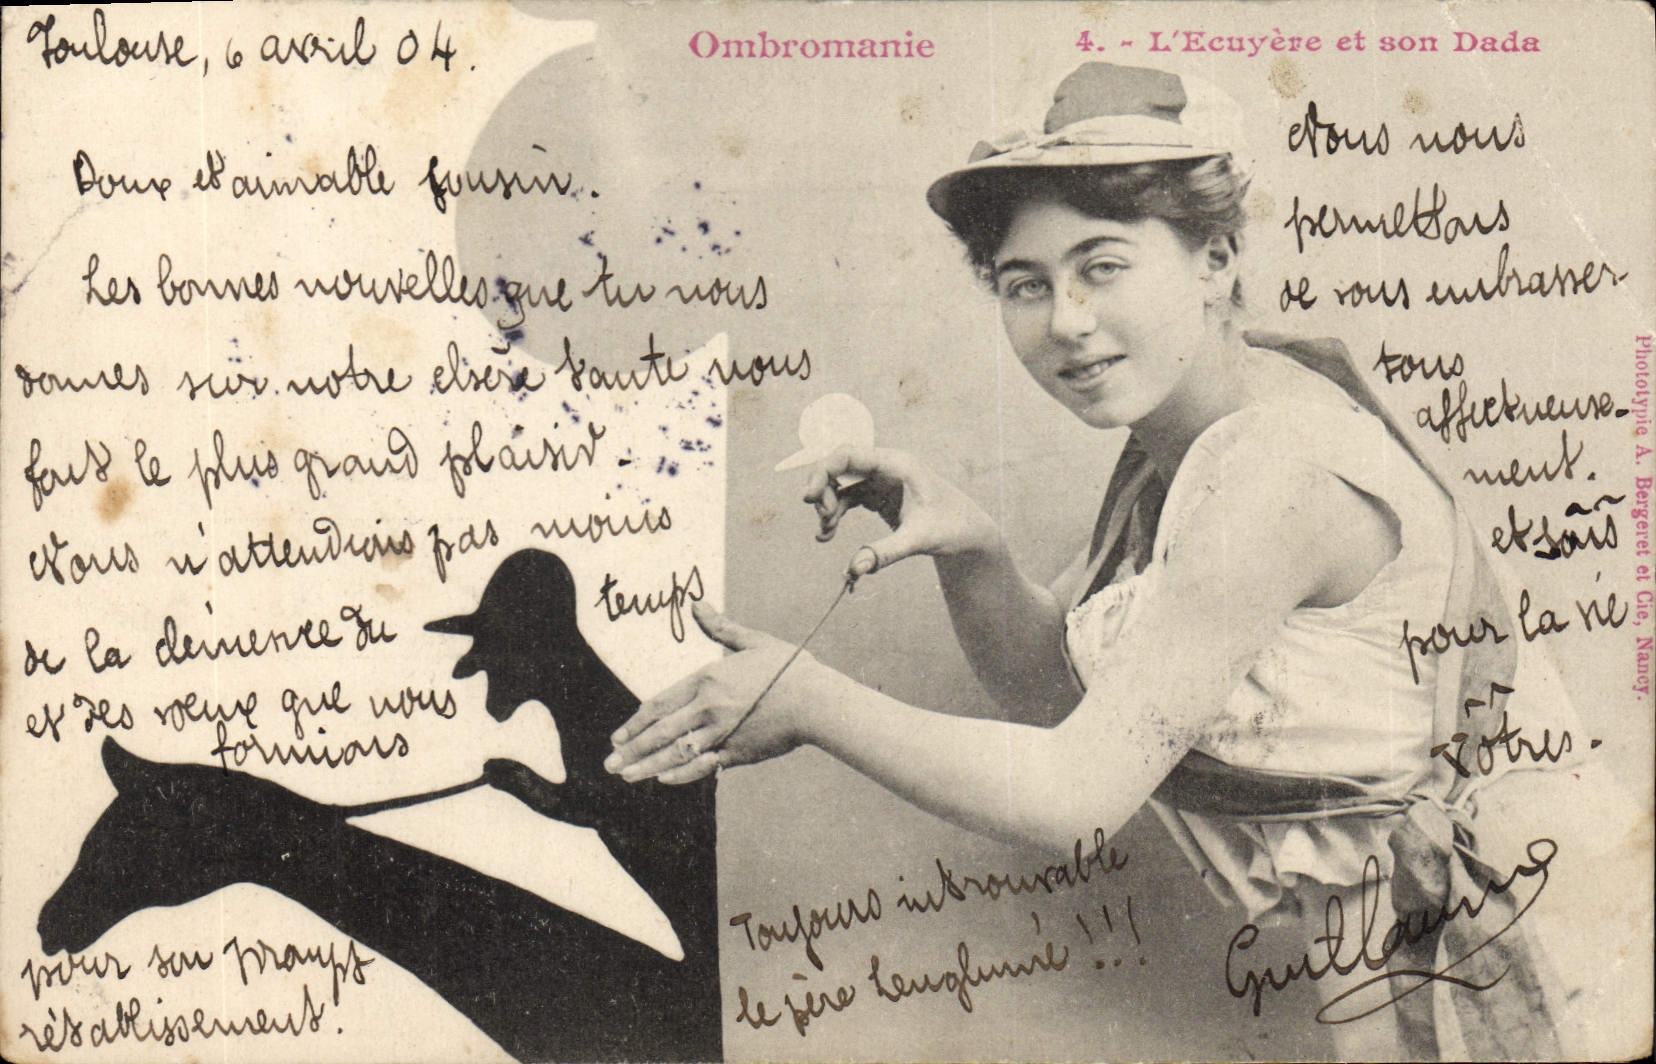 Ombromanie
4. - L'Ecuyère et son Dada
Toulouse, 6 avril 04.
Doux et aimable cousin.
Les bonnes nouvelles que tu nous
donnes sur notre chère tante nous
font le plus grand plaisir.
Nous n'attendions pas moins
de la clémence du temps
et des vœux que nous
formions
pour son prompt
rétablissement.
Nous nous
permettons
de vous embrasser
tous
affectueuse-
ment.
et sôis
pour la vie
vôtres.
Toujours introuvable
le père Lenglumé !!!
Guillaume
Phototypie A. Bergeret et Cie, Nancy.